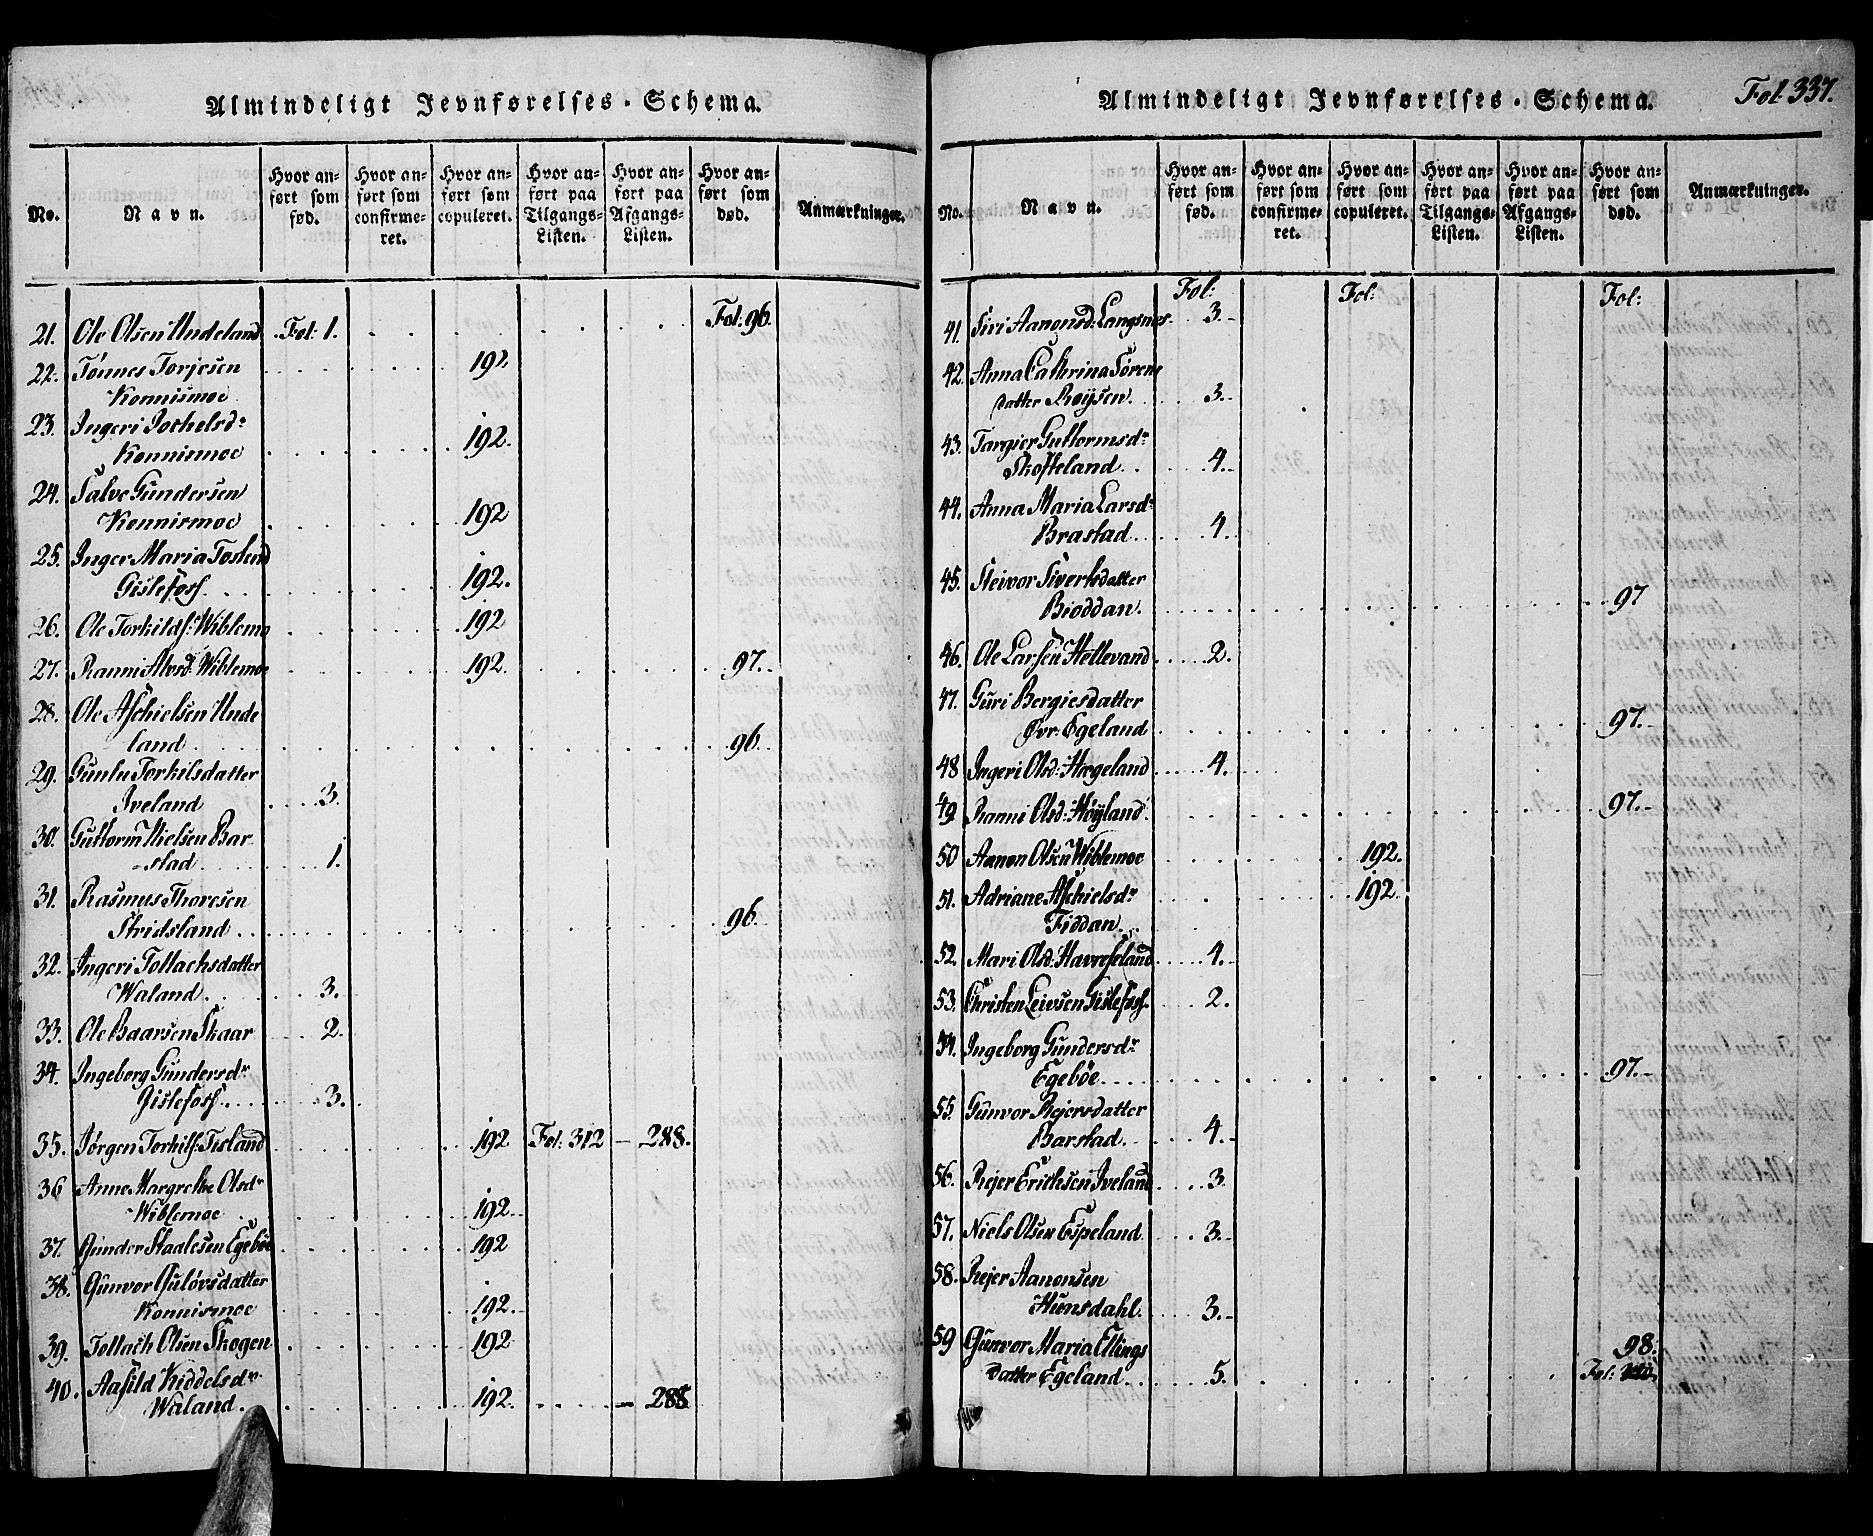 Almindeligt Jevnførelses-Schema.
No. Navn. Hvor anført som fød. Hvor anført som confirmeret. Hvor anført som copuleret. Hvor anført paa Tilgangs-Listen. Hvor anført paa Afgangs-Listen. Hvor anført som død. Anmærkninger.
21. Ole Olsen Undeland Fol: 1. Fol: 96.
22. Tönnes Torjesen 192
Konnismoe
23. Ingeri Jochelsdr
Konnismoe 192.
24. Salve Gundersen
Konnismoe 192
25. Inger Maria Tosland
Gislefoss 192.
26. Ole Torkilds: Wiblemo 192
27. Ranni Alvsd: Wiblemoe 192. 97.
28. Ole Aschielsen Unde
land 96.
29. Gunlu Torkilsdatter
Iveland 3.
30. Guttorm Nielsen Bar
-stad 1.
31. Rasmus Thoresen
Stridsland 96.
32. Ingeri Tollachsdatter
Waland 3.
33. Ole Baarsen Skaar 2.
34. Ingeborg Gundersdr
Gislefoss 3.
35. Jörgen Torkils: Tisland 192 Fol: 312 – 288.
36 Anne Margrethe Olsdr
Wiblemoe 192.
37. Gunder Staalesen Egeböe 192
38. Gunvor Gulövsdatter
Konnismoe 192.
39. Tollach Olsen Skogen 192
40. Aasild Kiddelsdr
Waland. 192. – 288
Almindeligt Jevnførelses-Schema. Fol. 337.
No. Navn. Hvor anført som fød. Hvor anført som confirmeret. Hvor anført som copuleret. Hvor anført paa Tilgangs-Listen. Hvor anført paa Afgangs-Listen. Hvor anført som død. Anmærkninger.
Fol: Fol: Fol:
41. Siri Aanonsd: Langsnes 3.
42. Anna Cathrina Sörens
datter Röysen 3.
43. Targier Guttormsdr
Skofteland 4.
44. Anna Maria Larsdr
Brastad 4.
45. Steivor Siverhsdatter
Bioddan. 97
46. Ole Larsen Hellevand 2.
47. Guri Bergiesdatter
Øvr: Egeland 97.
48 Ingeri Olsd: Hægeland 4.
49 Ranni Olsd: Höyland 97.
50 Aanon Olsen Wiblemoe 192.
51. Adriane Aschielsdr 192.
Fiddan
52. Mari Olsd: Havreseland 4.
53. Christen Leivsen Gislefoss. 2.
54. Ingeborg Gundersdr
Egeböe 97.
55. Gunvor Rejersdatter
Barstad 4.
56. Rejer Erichsen Iveland 3.
57. Niels Olsen Espeland 3.
58. Rejer Aanonsen
Hunsdahl. 3.
59 Gunvor Maria Ellings 98.
datter Egeland 5. Fol: